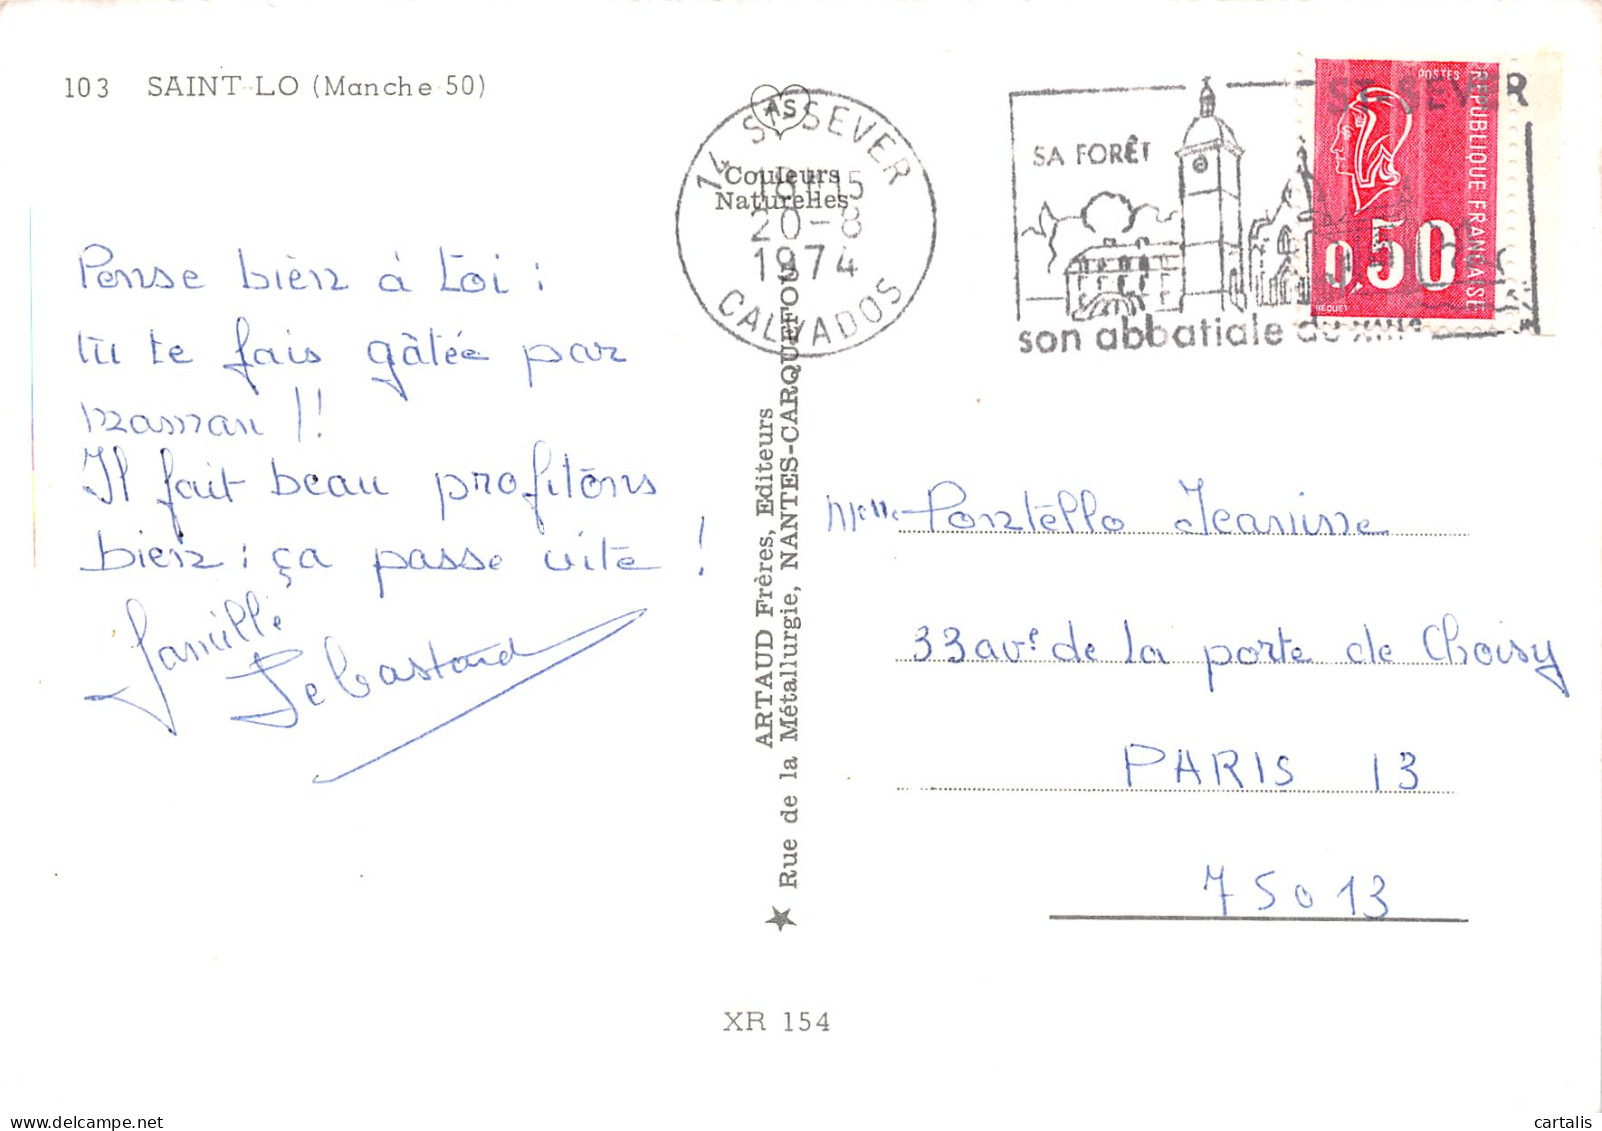 103 SAINT-LO (Manche 50)
Pense bien à toi :
tu te fais gâtée par
maman !!
Il fait beau profitons
bien : ça passe vite !
famille
AS
Couleurs
Naturelles
14 ST-SEVER
18H15
20-8
1974
CALVADOS
ST-SEVER
SA FORÊT
son abbatiale du XIIIe
POSTES
REPUBLIQUE FRANCAISE
0,50
BEQUET
ARTAUD Frères, Editeurs
Rue de la Métallurgie, NANTES-CARQUEFOU
Melle Pontello Jeannine
33 ave de la porte de Choisy
PARIS 13
75013
XR 154
cartalis
delcampe.net